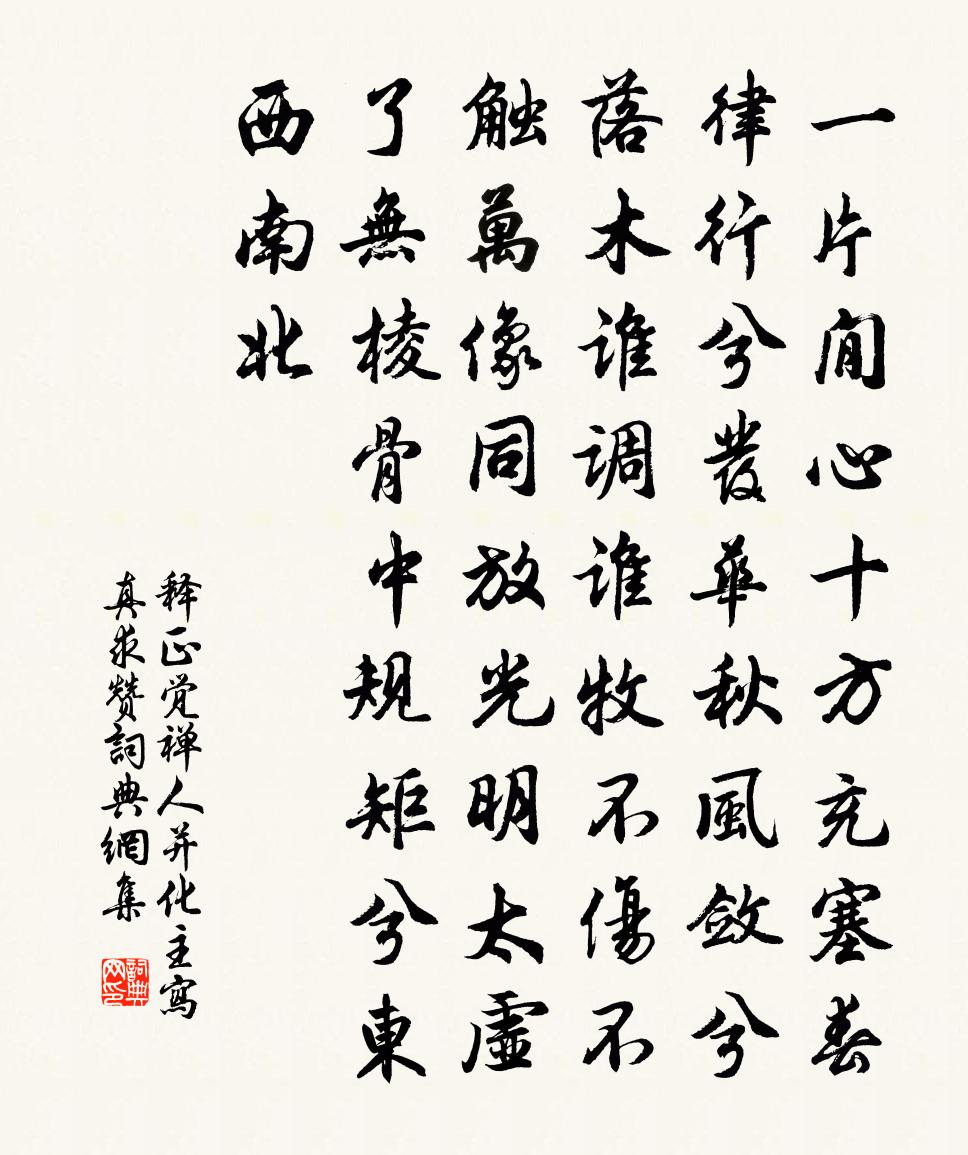 一片閒心十方充塞春
律行兮發華秋風斂兮
落木谁调谁牧不傷不
触萬像同放光明太虛
了無棱骨中規矩兮東
西南北
释正觉禅人并化主寫
真求赞詞典網集
詞典网印